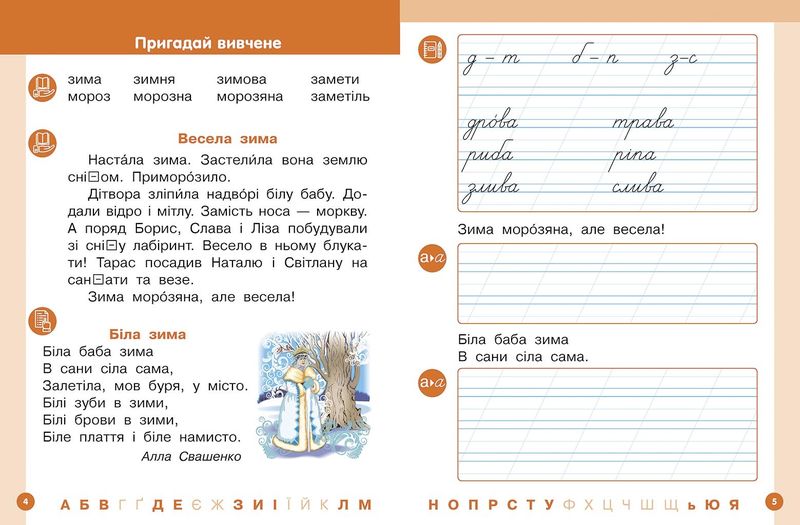 Пригадай вивчене
зима зимня зимова замети
мороз морозна морозяна заметіль
Весела зима
Наста́ла зима. Застели́ла вона землю
сні[–]ом. Приморо́зило.
Дітвора зліпи́ла надво́рі білу бабу. До-
дали відро і мітлу. Замість носа — моркву.
А поряд Борис, Слава і Ліза побудували
зі сні[–]у лабіринт. Весело в ньому блука-
ти! Тарас посадив Наталю і Світлану на
сан[–]ати та везе.
Зима моро́зяна, але весела!
Біла зима
Біла баба зима
В сани сіла сама,
Залетіла, мов буря, у місто.
Білі зуби в зими,
Білі брови в зими,
Біле плаття і біле намисто.
Алла Свашенко
4
А Б В Г Ґ Д Е Є Ж З И І Ї Й К Л М
д – т б – п з–с
дро́ва трава
риба ріпа
злива слива
Зима моро́зяна, але весела!
а▸а
Біла баба зима
В сани сіла сама.
а▸а
Н О П Р С Т У Ф Х Ц Ч Ш Щ ь Ю Я
5